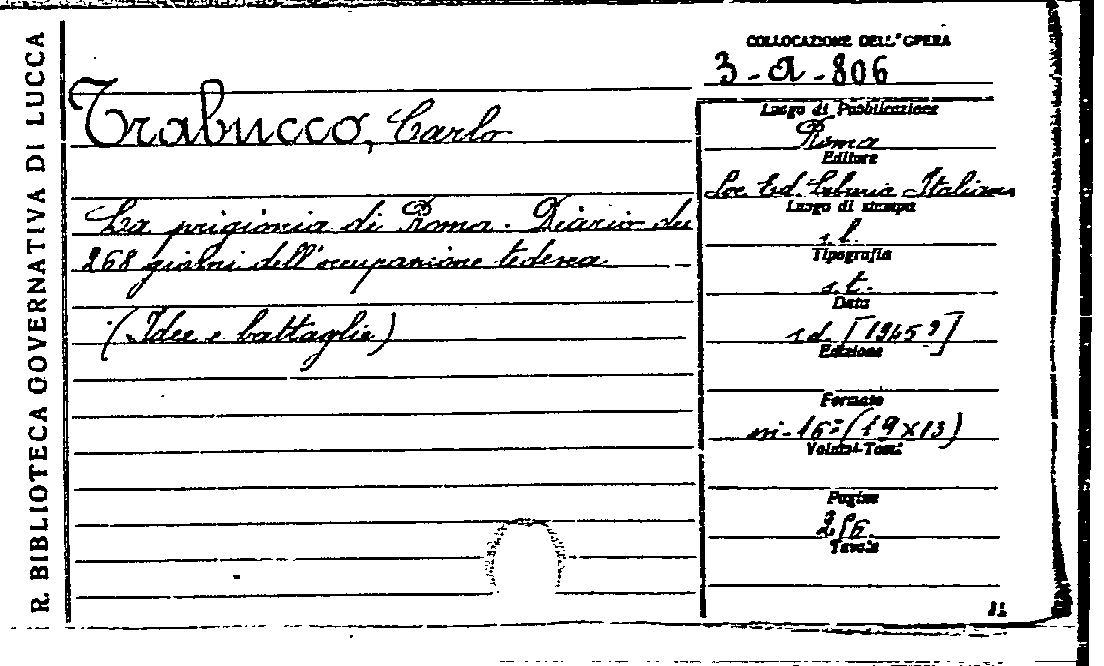 R. BIBLIOTECA GOVERNATIVA DI LUCCA
COLLOCAZIONE DELL'OPERA
3-a-806
Trabucco, Carlo
La prigionia di Roma. Diario dei
268 giorni dell'occupazione tedesca
(Idee e battaglie)
Luogo di Pubblicazione
Roma
Editore
Soc. Ed. Libraria Italiana
Luogo di stampa
s.l.
Tipografia
s.t.
Data
s.d. [1945?]
Edizione
Formato
in-16° (19x13)
Volumi-Tomi
Pagine
Tavole